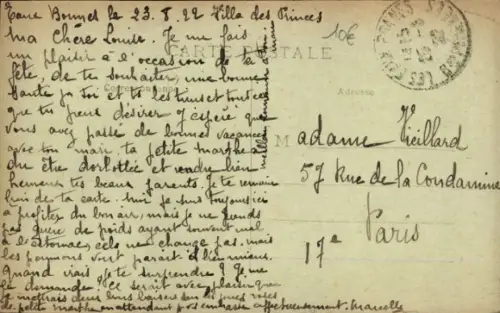 Eaux Bonnes le 23.8.22 Villa des Princes
Ma Chère Louise. Je me fais
un plaisir à l'occasion de ta
fête, de te souhaiter, une bonne
santé pour toi et tes tiens et tout ce
que tu peux désirer. J'espère que
vous avez passé de bonnes vacances
avec ton mari, ta petite Marthe a
du être dorlottée et rendre bien
heureux tes beaux parents. Je te remercie
bien de ta carte. Moi je suis toujours ici
à profiter du bon air, mais je ne prends
pas guère de poids ayant souvent mal
à l'estomac, cela ne change pas. mais
les poumons vont parait il bien mieux.
Quand vais je te surprendre ? Je me
le demande ? Ce serait avec plaisir que
je mettrais deux bons baisers sur les joues roses
de petite Marthe en attendant je vous embrasse affectueusement. Marcelle
CARTE POSTALE
Correspondance
Adresse
10€
LES EAUX-BONNES
Madame Vieillard
57 Rue de la Condamine
Paris
17e